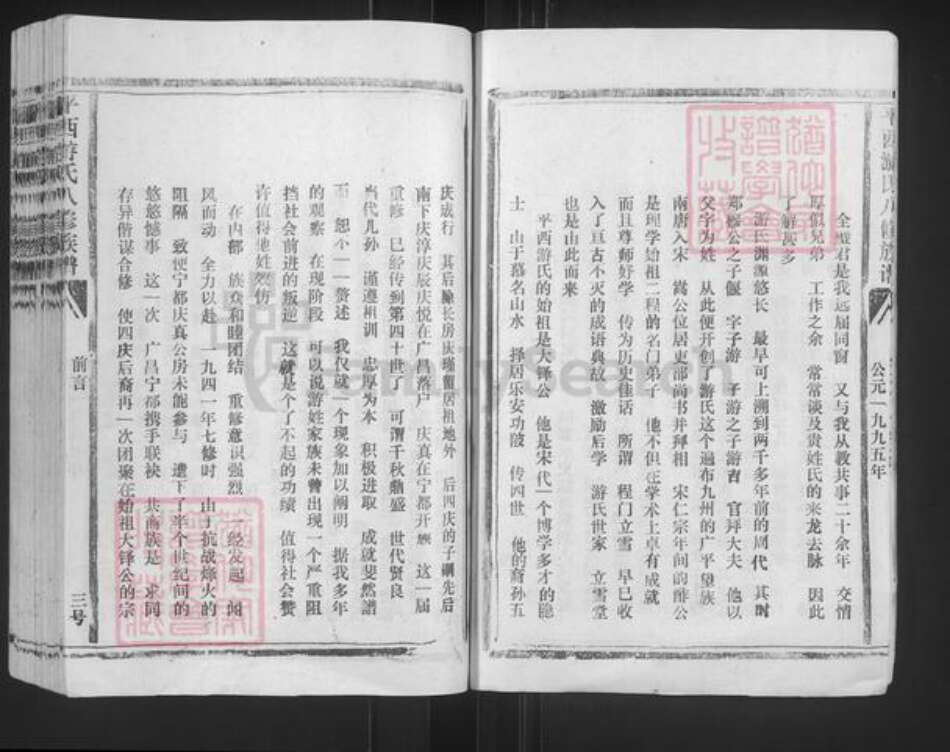 平西游氏八修族谱
公元一九九五年
全 君是我远届同窗 又与我从教共事二十余年 交情
厚似兄弟 工作之余 常常谈及贵姓氏的来龙去脉 因此
了解 多
游氏渊源悠长 最早可上溯到两千多年前的周代 其时
郑穆公之子偃 字子游 子游之子游吉 官拜大夫 他以
父字为姓 从此便开创了游氏这个遍布九州的广平望族
南唐入宋 嵩公位居吏部尚书并拜相 宋仁宗年间的酢公
是理学始祖二程的名门弟子 他不但在学术上卓有成就
而且尊师好学 传为历史佳话 所谓 程门立雪 早已收
入了亘古不灭的成语典故 激励后学 游氏世家 立雪堂
也是由此而来
平西游氏的始祖是大铎公 他是宋代一个博学多才的隐
士 由于慕名山水 择居乐安功陂 传四世 他的裔孙五
庆成行 其后 长房庆瑾留居祖地外 后四庆的子嗣先后
南下庆淳庆辰庆悦在广昌落户 庆真在宁都开 这一届
重修 已经传到第四十世了 可谓千秋鼎盛 世代贤良
当代儿孙 谨遵祖训 忠厚为本 积极进取 成就斐然谱
面 恕不一一赘述 我仅就一个现象加以阐明 据我多年
的观察 在现阶段 可以说游姓家族未曾出现一个严重阻
挡社会前进的叛逆 这就是个了不起的功绩 值得社会赞
许值得他姓效仿
在内部 族众和睦团结 重修意识强烈 一经发起 闻
风而动 全力以赴 一九四一年七修时 由于抗战烽火的
阻隔 致使宁都庆真公房未能参与 遗下了半个世纪间的
悠悠憾事 这一次 广昌宁都携手联袂 共商族是 求同
存异偕谋合修 使四庆后裔再一次团聚在始祖大铎公的宗
平西游氏八修族谱
前言
三号